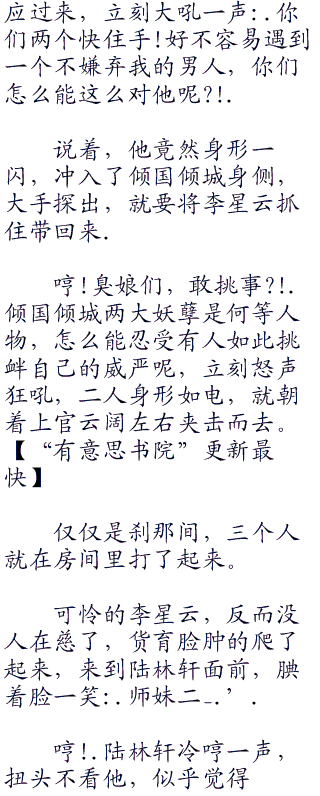 应过来，立刻大吼一声:.你
们两个快住手!好不容易遇到
一个不嫌弃我的男人，你们
怎么能这么对他呢?!.
说着，他竟然身形一
闪，冲入了倾国倾城身侧，
大手探出，就要将李星云抓
住带回来.
哼!臭娘们，敢挑事?!.
倾国倾城两大妖孽是何等人
物，怎么能忍受有人如此挑
衅自己的威严呢，立刻怒声
狂吼，二人身形如电，就朝
着上官云阔左右夹击而去。
【“有意思书院”更新最
快】
仅仅是刹那间，三个人
就在房间里打了起来。
可怜的李星云，反而没
人在慈了，货育脸肿的爬了
起来，来到陆林轩面前，腆
着脸一笑:.师妹二_.’.
哼!.陆林轩冷哼一声，
扭头不看他，似乎觉得